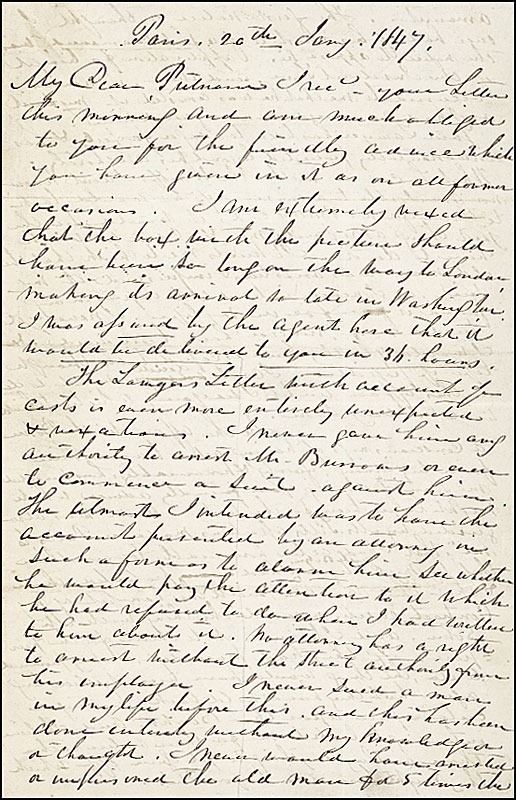 Paris. 20th Jany. 1847.
My Dear Putnam I recd your Letter
this morning and am much obliged
to you for the friendly advice which
you have given in it as on all former
occasions. I am extremely vexed
that the box with the picture should
have been so long on the way to London
making its arrival so late in Washington.
I was assured by the agent here that it
would be delivered to you in 36 hours.
The Lawyers Letter with account of
costs is even more entirely unexpected
& vexatious. I never gave him any
authority to arrest Mr. Burrows or even
to commence a suit against him.
The utmost I intended was to have the
account presented by an attorney in
such a form as to alarm him see whether
he would pay the attention to it which
he had refused to do when I had written
to him about it. No attorney has a right
to arrest without the strict authority from
his employer. I never sued a man
in my life before this. and this has been
done entirely without my knowledge
or thought. I never would have arrested
or imprisoned the old man for 5 times the